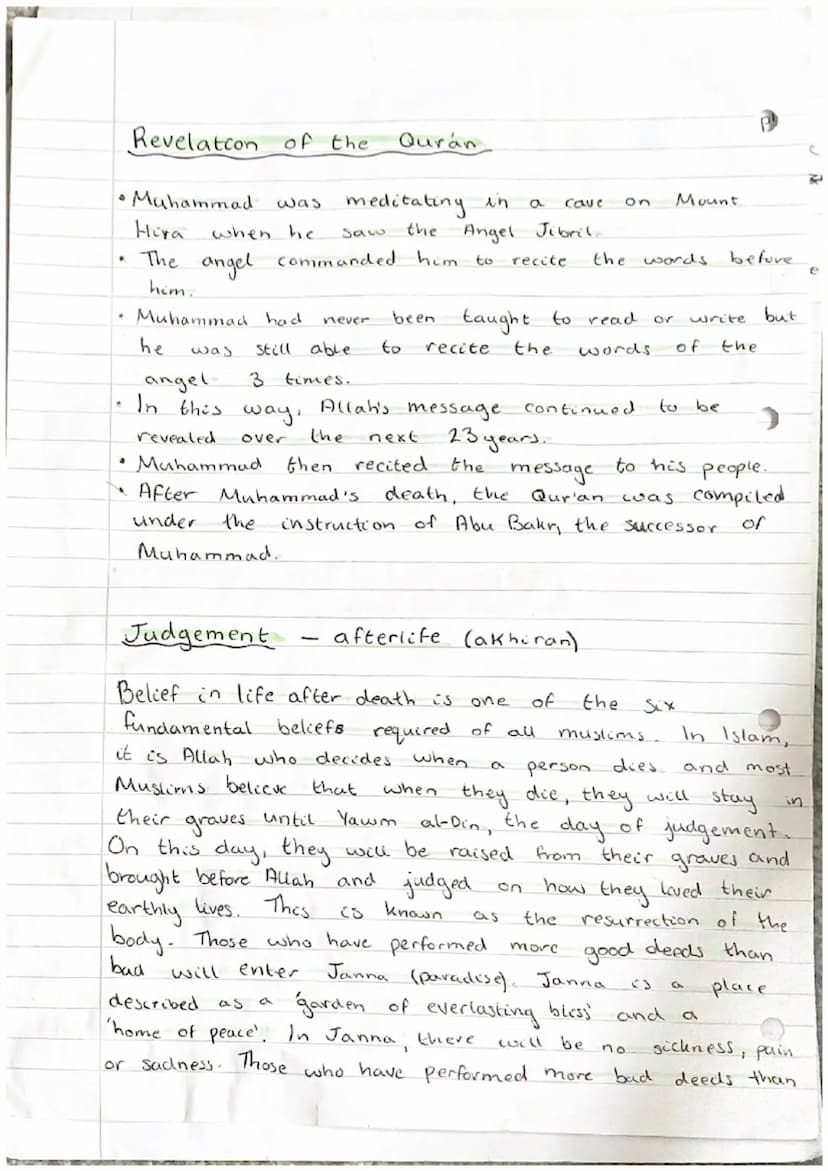 Revelation of the Qurán
• Muhammad was meditating in a cave on Mount
Hira when he saw the Angel Jibril.
• The angel commanded him to recite the words before
him.
• Muhammad had never been taught to read or write but
he was still able to recite the words of the
angel 3 times.
• In this way, Allah's message continued to be
revealed over the next 23 years.
• Muhammad then recited the message to his people.
• After Muhammad's death, the Qur'an was compiled
under the instruction of Abu Bakr, the successor of
Muhammad.
Judgement – afterlife (akhiran)
Belief in life after death is one of the six
fundamental beliefs required of all muslims. In Islam,
it is Allah who decides when a person dies and most
Muslims believe that when they die, they will stay in
their graves until Yawm al-Din, the day of judgement.
On this day, they will be raised from their graves and
brought before Allah and judged on how they lived their
earthly lives. This is known as the resurrection of the
body. Those who have performed more good deeds than
bad will enter Janna (paradise). Janna is a place
described as a 'garden of everlasting bliss' and a
'home of peace'. In Janna, there will be no sickness, pain
or sadness. Those who have performed more bad deeds than